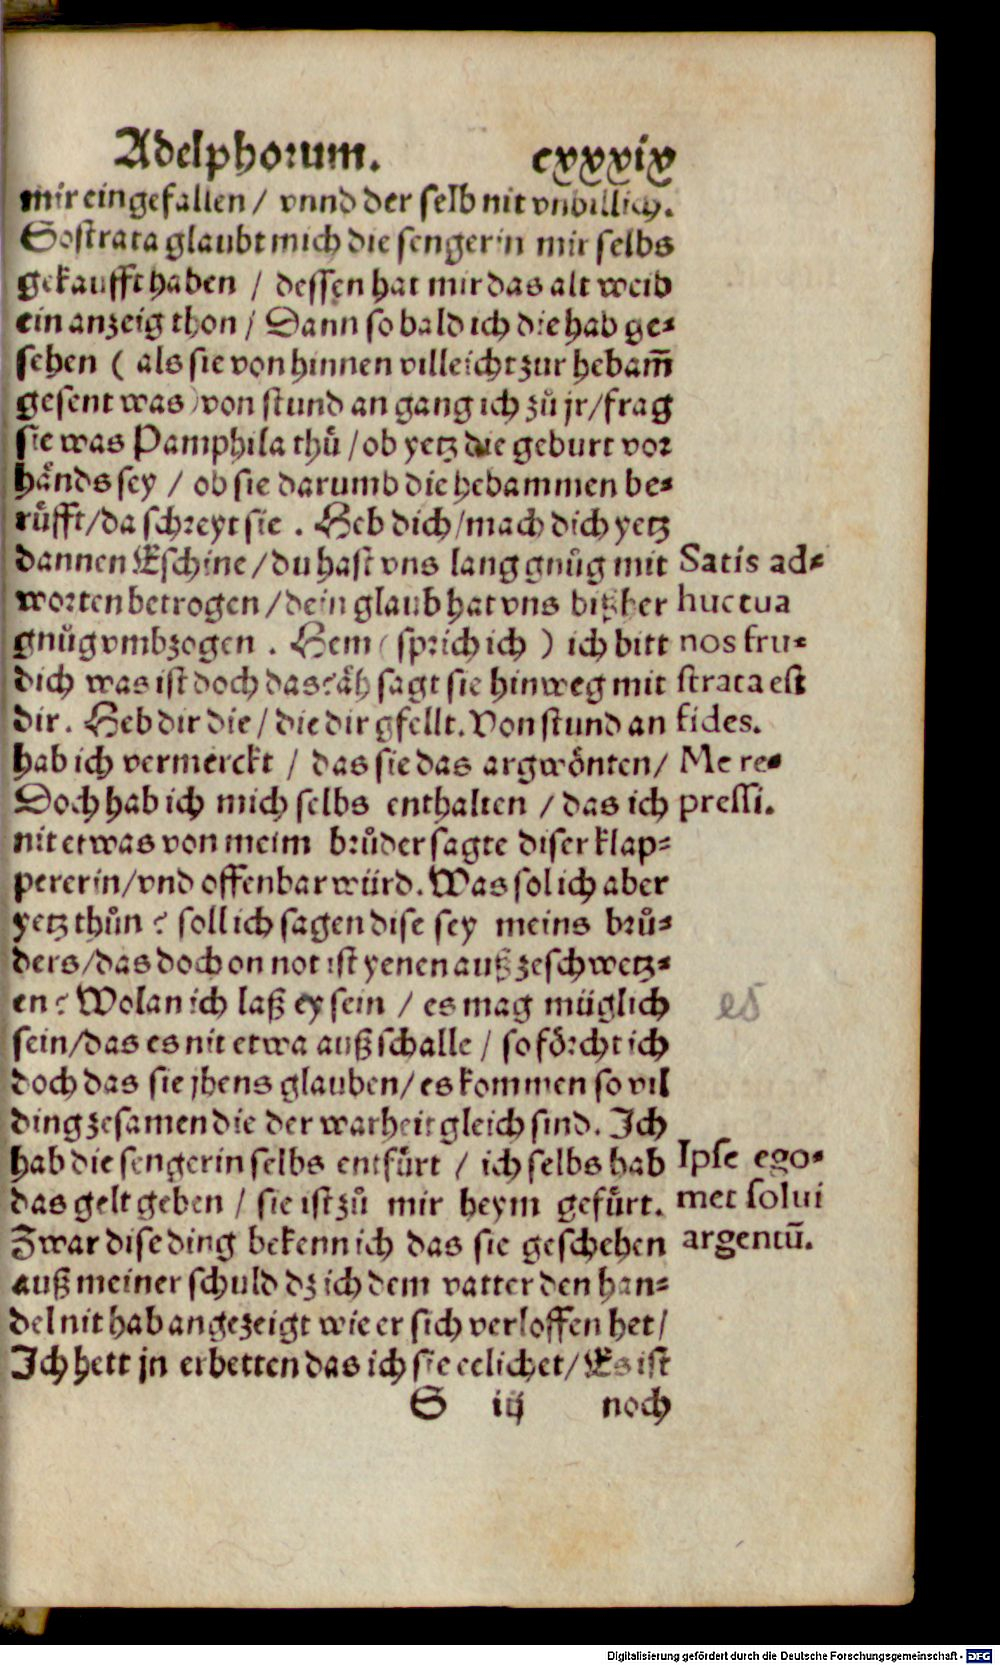 Adelphorum. cxxxix
mir eingefallen / vnnd der selb nit vnbillich.
Sostrata glaubt mich die sengerin mir selbs
gekaufft haben / dessen hat mir das alt weib
ein anzeig thon / Dann so bald ich die hab ge-
sehen ( als sie von hinnen villeicht zur hebam̄
gesent was ) von stund an gang ich zů jr / frag
sie was Pamphila thů / ob yetz die geburt vor
hånds sey / ob sie darumb die hebammen be-
rüfft / da schreyt sie . Heb dich / mach dich yetz
dannen Eschine / du hast vns lang gnůg mit
worten betrogen / dein glaub hat vns bißher
gnůg vmbzogen . Hem ( sprich ich ) ich bitt
dich was ist doch das? åh sagt sie hinweg mit
dir. Heb dir die / die dir gfellt. Von stund an
hab ich vermerckt / das sie das argwönten /
Doch hab ich mich selbs enthalten / das ich
nit etwas von meim brůder sagte diser klap-
pererin / vnd offenbar würd. Was sol ich aber
yetz thůn ? soll ich sagen dise sey meins brů-
ders / das doch on not ist yenen auß zeschwetz-
en ? Wolan ich laß ey sein / es mag müglich
sein / das es nit etwa auß schalle / so förcht ich
doch das sie jhens glauben / es kommen so vil
ding zesamen die der warheit gleich sind. Ich
hab die sengerin selbs entfürt / ich selbs hab
das gelt geben / sie ist zů mir heym gefürt.
Zwar dise ding bekenn ich das sie geschehen
auß meiner schuld dz ich dem vatter den han-
del nit hab angezeigt wie er sich verloffen het /
Ich hett jn erbetten das ich sie eelichet / Es ist
S iij noch
Satis ad-
huc tua
nos fru-
strata est
fides.
Me re-
pressi.
es
Ipse ego-
met solui
argentū.
Digitalisierung gefördert durch die Deutsche Forschungsgemeinschaft - DFG